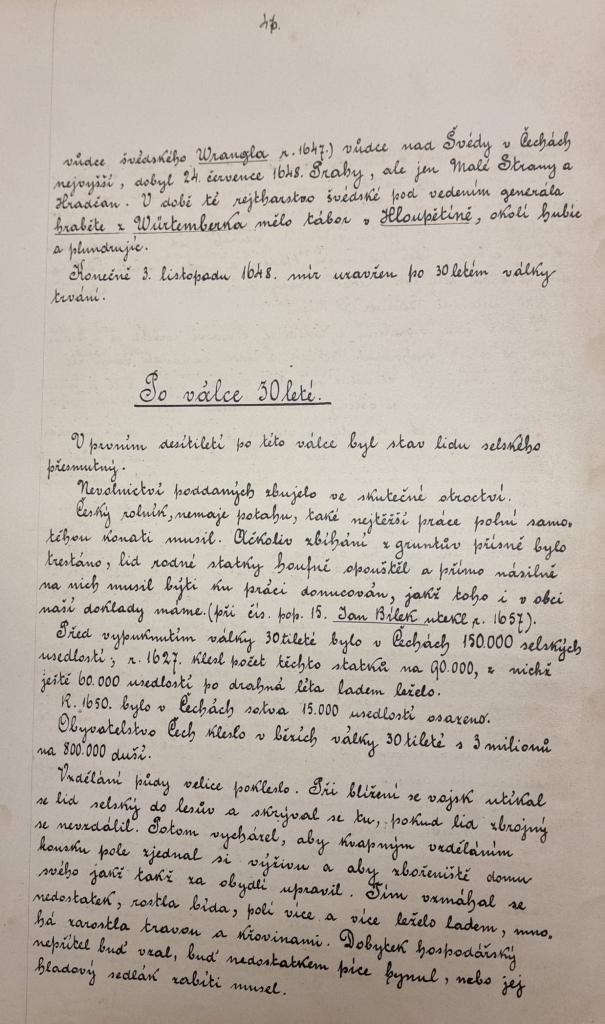 47.
vůdce švédského Wrangla r. 1647.) vůdce nad Švédy v Čechách
nejvyšší, dobyl 24. července 1648. Prahy, ale jen Malé Strany a
Hradčan. V době té rejtharstvo švédské pod vedením generála
hraběte z Würtemberka mělo tábor v Hloupětíně, okolí hubíc
a plundrujíc.
Konečně 3. listopadu 1648. mír uzavřen po 30 letém války
trvání.
Po válce 30leté.
V prvním desítiletí po této válce byl stav lidu selského
přesmutný.
Nevolnictví poddaných zbujelo ve skutečné otroctví.
Český rolník, nemaje potahu, také nejtěžší práce polní samo-
těhou konati musil. Ačkoliv zbíhání z gruntův přísně bylo
trestáno, lid rodné statky houfně opouštěl a přímo násilně
na nich musil býti ku práci donucován, jakž toho i v obci
naší doklady máme. (při čís. pop. 15. Jan Bílek utekl r. 1657).
Před vypuknutím války 30tileté bylo v Čechách 150.000 selských
usedlostí; r. 1627. klesl počet těchto statků na 90.000, z nichž
ještě 60.000 usedlostí po drahná léta ladem leželo.
R. 1650. bylo v Čechách sotva 15.000 usedlostí osazeno.
Obyvatelstvo Čech kleslo v bězích války 30tileté s 3 milionů
na 800.000 duší.
Vzdělání půdy velice pokleslo. Při blížení se vojsk utíkal
se lid selský do lesův a skrýval se tu, pokud lid zbrojný
se nevzdálil. Potom vycházel, aby kvapným vzděláním
kousku pole zjednal si výživu a aby zbořeniště domu
svého jakž takž za obydlí upravil. Tím vzmáhal se
nedostatek, rostla bída, polí více a více leželo ladem, mno-
há zarostla travou a křovinami. Dobytek hospodářský
nepřítel buď vzal, buď nedostatkem píce hynul, nebo jej
hladový sedlák zabíti musel.